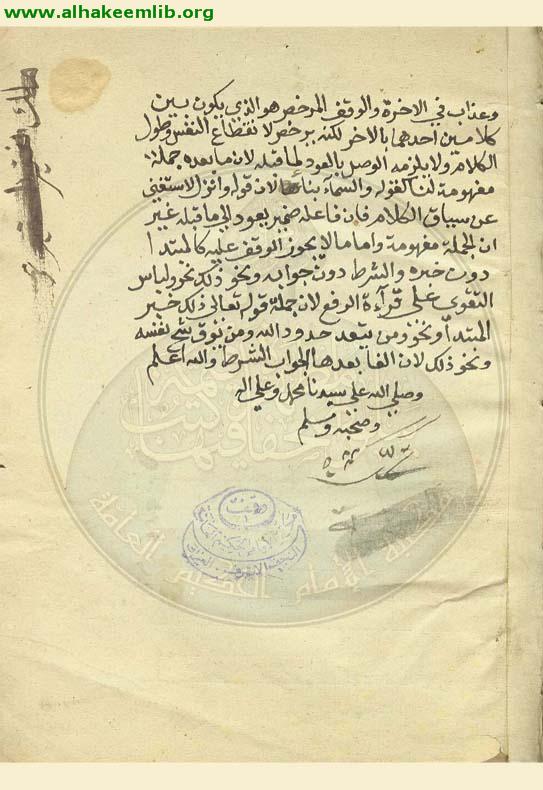 www.alhakeemlib.org
وعذاب في الاخرة والوقف المرخص هو الذي يكون بين
كلامين احدهما بالاخر لكنه يرخص لانقطاع النفس وطول
الكلام ولا يلزمه الوصل بالعود لما قبله لان ما بعده جملة
مفهومة لنا كقوله والسماء بناء لان قوله وانزل لا ستغني
عن سياق الكلام فان فاعله ضمير يعود الى ما قبله غير
ان الجملة مفهومة واما ما لا يجوز الوقف عليه كالمبتدأ
دون خبره والشرط دون جوابه ونحو ذلك نحو ولباس
التقوى على قرآءة الرفع لان جملة قوله تعالى ذلك خير
المبتدأ ونحو ومن يتعد حدود الله ومن يوق شح نفسه
ونحو ذلك لان الفا بعدها لجواب الشرط والله اعلم
وصلي الله على سيدنا محمد وعلى اله
وصحبه وسلم
مكتبة الإمام الحكيم العامة